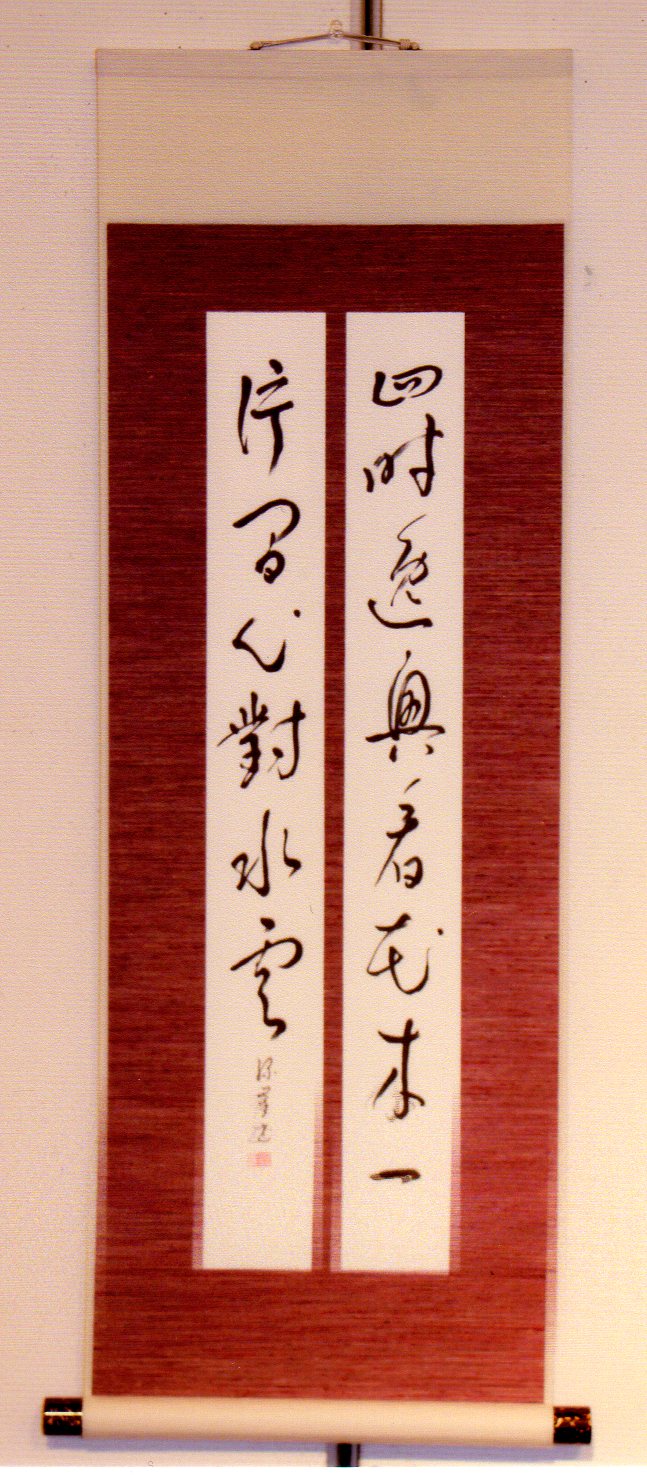 四時逸興看花木一
片間心對水雲